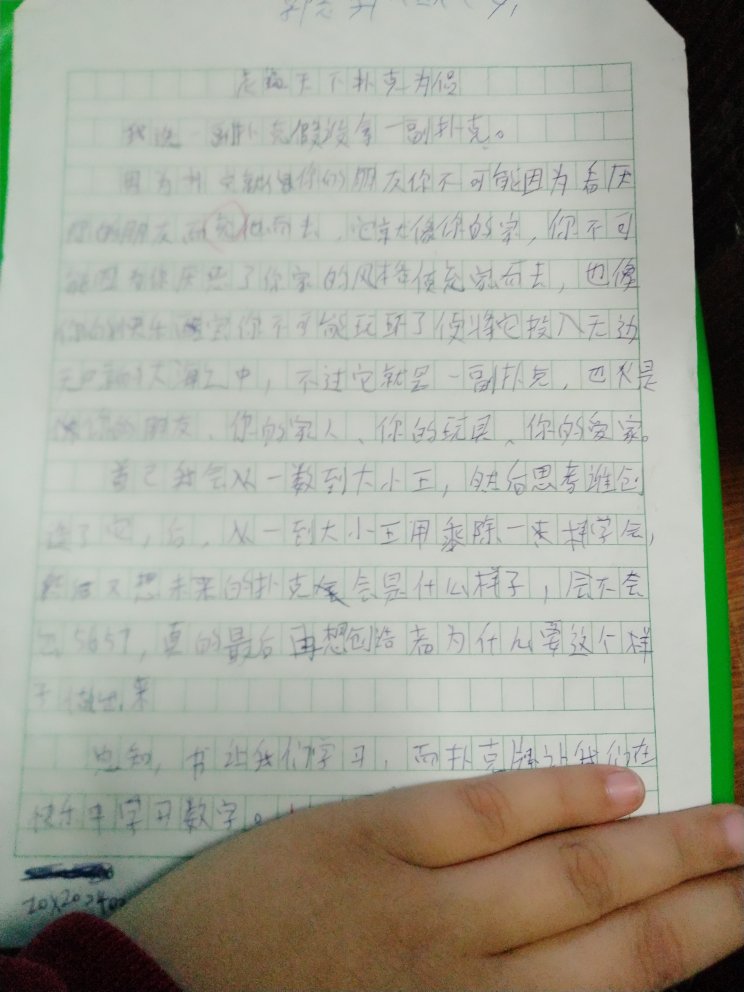 走遍天下扑克为侣
我选一副扑克假设拿一副扑克。
因为扑克就像你的朋友你不可能因为看厌
你的朋友而 他而去，它就像你的家，你不可
能因为你厌恶了你家的风格便 而去，也像
你的 你不可能玩坏了便将它投入无边
大海之中，不过它就是一副扑克，也又是
你的朋友、你的家人、你的玩具、你的爱家。
首己我会从一数到大小王，然后思考谁包
造了它，后，从一到大小王用乘除一来 学会，
然后又想未来的扑克会是什么样子，会不会
5657，真的最后再想包造者为什么要这个样
子做出来
总知，书让我们学习，而扑克牌让我们在
快乐中学习数字。
20×20=400